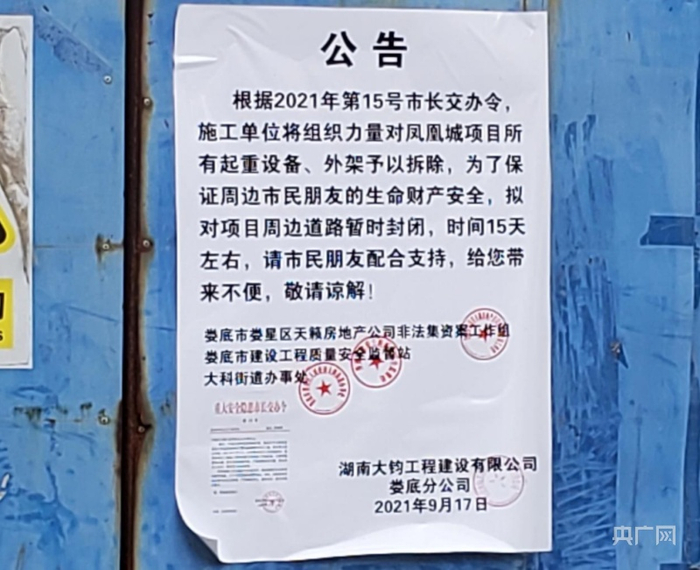 公告
根据2021年第15号市长交办令，
施工单位将组织力量对凤凰城项目所
有起重设备、外架予以拆除，为了保
证周边市民朋友的生命财产安全，拟
对项目周边道路暂时封闭，时间15天
左右，请市民朋友配合支持，给您带
来不便，敬请谅解！
娄底市娄星区天籁房地产公司非法集资案工作组
娄底市建设工程质量安全监督站
大科街道办事处
重大安全隐患市长交办令
湖南大钧工程建设有限公司
娄底分公司
2021年9月17日
央广网